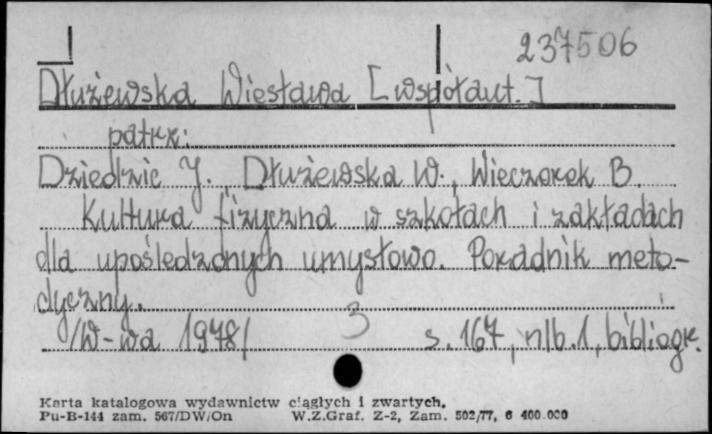 237506
Dłużewska Wiesława [współaut.]
patrz:
Dziedzic J. Dłużewska W., Wieczorek B.
Kultura fizyczna w szkołach i zakładach
dla upośledzonych umysłowo. Poradnik meto-
dyczny.
/W-wa 1978/ 3 s. 167, nlb. 1, bibliogr.
Karta katalogowa wydawnictw ciągłych i zwartych.
Pu-B-144 zam. 567/DW/On W.Z.Graf. Z-2, Zam. 502/77, 6 400.000